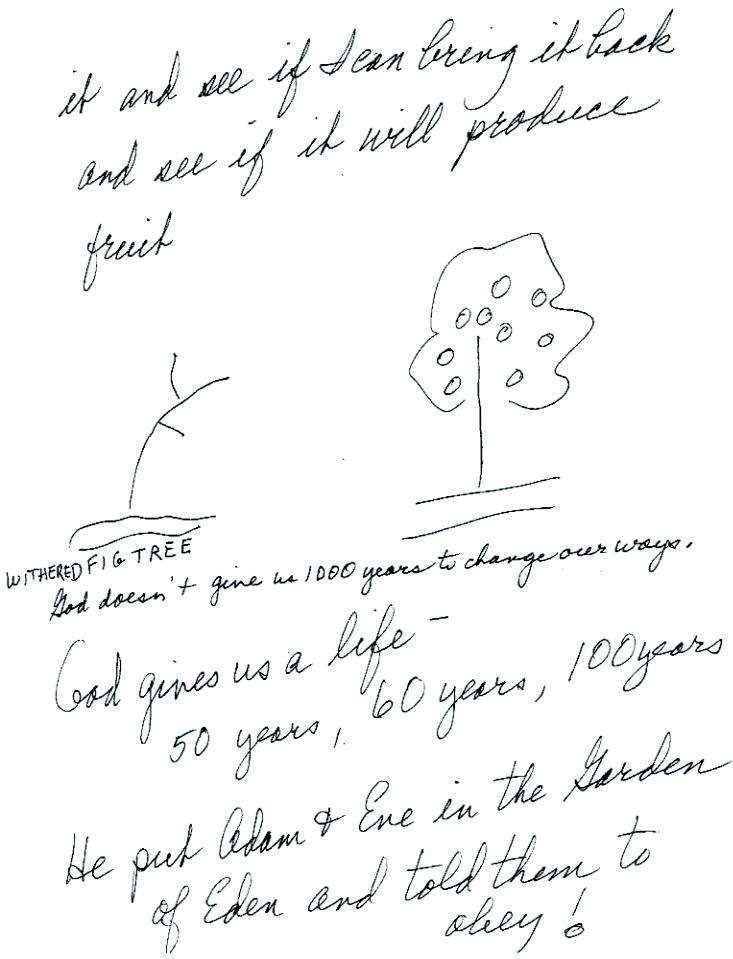 it and see if I can bring it back
and see if it will produce
fruit
WITHERED FIG TREE
God doesn't give us 1000 years to change our ways.
God gives us a life –
50 years, 60 years, 100 years
He put Adam & Eve in the Garden
of Eden and told them to
obey!